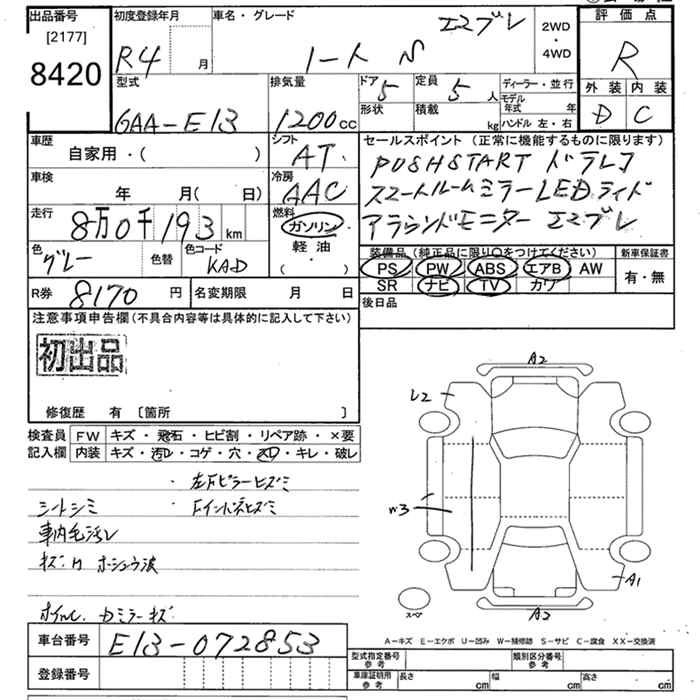 出品番号 初度登録年月 車名・グレード エマブレ 2WD・4WD 評価点
[2177]
8420
R4 月 ノート R
外装 内装
D C
型式 排気量 ドア 5 定員 5 人 ディーラー・並行
形状 積載 kg モデル年式 年
ハンドル 左・右
6AA-E13 1200cc
車歴 シフト セールスポイント (正常に機能するものに限ります)
自家用・( ) AT PUSHSTART ドラレコ
車検 冷房 スマートルームミラー LED ライト
年 月( 日) AAC アラウンドモニター エマブレ
走行 燃料
8万0千193 km ガソリン
軽油
・( )
色 色替 色コード
グレー KAD
装備品 (純正品に限り○をつけてください) 新車保証書
PS PW ABS エアB AW 有・無
SR ナビ TV カワ
R券 8170 円 名変期限 月 日 後日品
注意事項申告欄 (不具合内容等は具体的に記入して下さい)
初出品
修復歴 有 〔箇所 〕
検査員 FW キズ・飛石・ヒビ割・リペア跡・×要
記入欄 内装 キズ・汚レ・コゲ・穴・スレ・キレ・破レ
・左Fピラーヒズミ
シートシミ ・Fインパネヒズミ
車内毛汚レ
キズ・凹 ホシュウ波
ホイル、ドミラーキズ
A2
L2
W3
A1
スペア
A2
A－キズ E－エクボ U－凹み W－補修跡 S－サビ C－腐食 XX－交換済
車台番号 E13-072853
登録番号
型式指定番号 参考 類別区分番号 参考
車庫証明用 参考 長さ cm 幅 cm 高さ cm